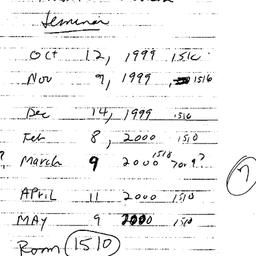 Seminar
Oct 12, 1999 1510
Nov 9, 1999, 1510
Dec 14, 1999 1510
Feb 8, 2000 1510
? March 9 2000 1510 7 or 9?
APRIL 11 2000 1510
MAY 9 2000 1510
Room 1510
7